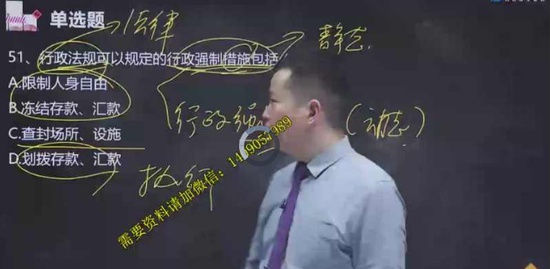 单选题
法律
静态
51、行政法规可以规定的行政强制措施包括
A.限制人身自由
B.冻结存款、汇款
行政强
(动态)
C.查封场所、设施
D.划拨存款、汇款
执行
需要资料请加微信: